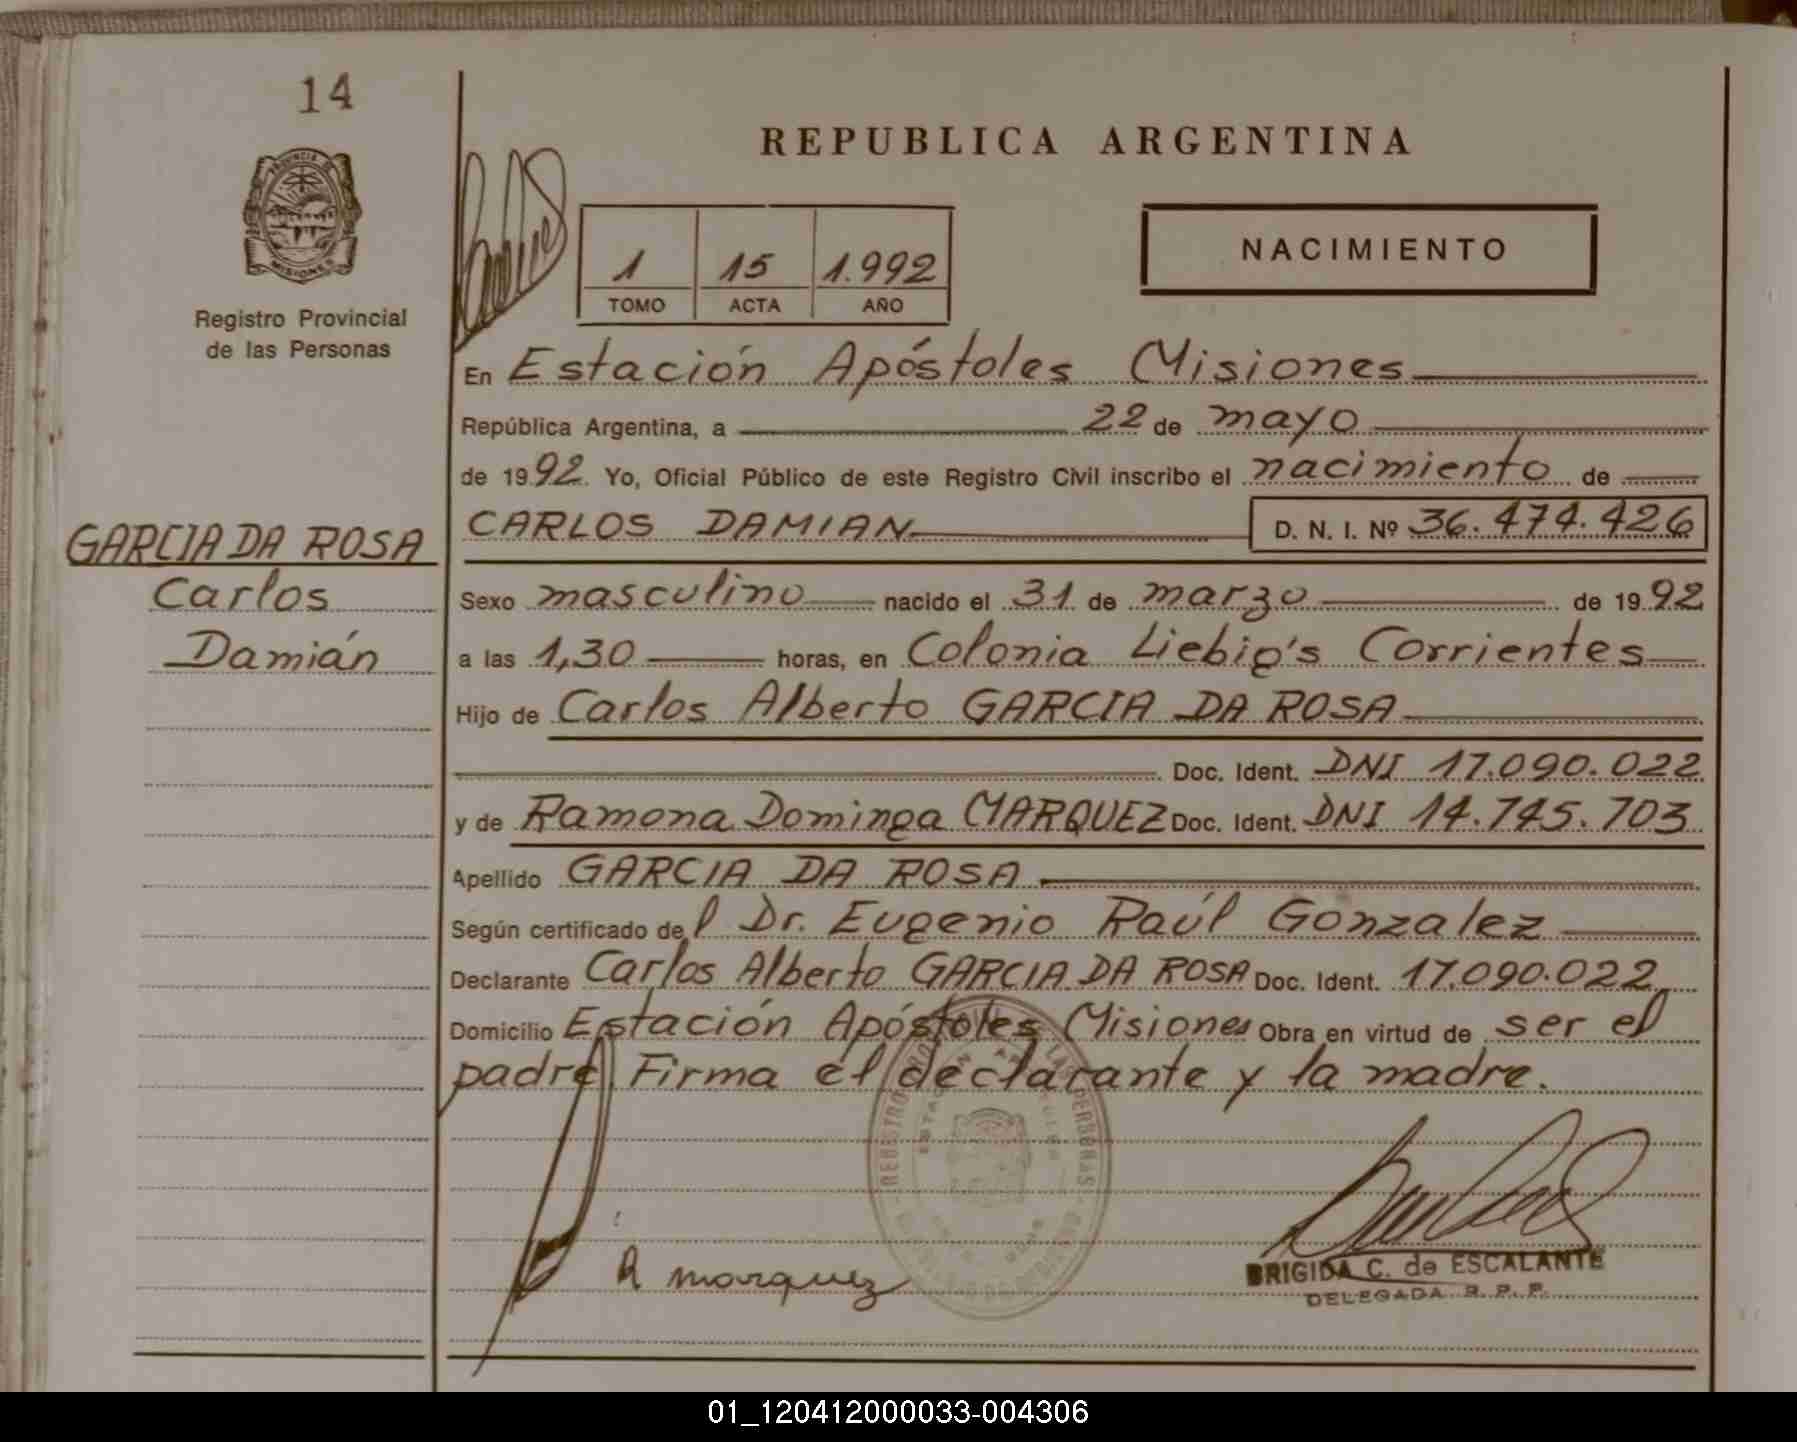 14
REPUBLICA ARGENTINA
PROVINCIA DE
MISIONES
Registro Provincial
de las Personas
NACIMIENTO
1 15 1.992
TOMO ACTA AÑO
En Estación Apóstoles Misiones
República Argentina, a 22 de mayo
de 1992. Yo, Oficial Público de este Registro Civil inscribo el nacimiento de
GARCIA DA ROSA
Carlos
Damián
CARLOS DAMIAN D. N. I. Nº 36.474.426
Sexo masculino nacido el 31 de marzo de 1992
a las 1,30 horas, en Colonia Liebig's Corrientes
Hijo de Carlos Alberto GARCIA DA ROSA
Doc. Ident. DNI 17.090.022
y de Ramona Dominga MARQUEZ Doc. Ident. DNI 14.745.703
Apellido GARCIA DA ROSA
Según certificado del Dr. Eugenio Raúl Gonzalez
Declarante Carlos Alberto GARCIA DA ROSA Doc. Ident. 17.090.022
Domicilio Estación Apóstoles Misiones Obra en virtud de ser el
padre. Firma el declarante y la madre.
R marquez
BRIGIDA C. de ESCALANTE
DELEGADA R. P. P.
01_120412000033-004306